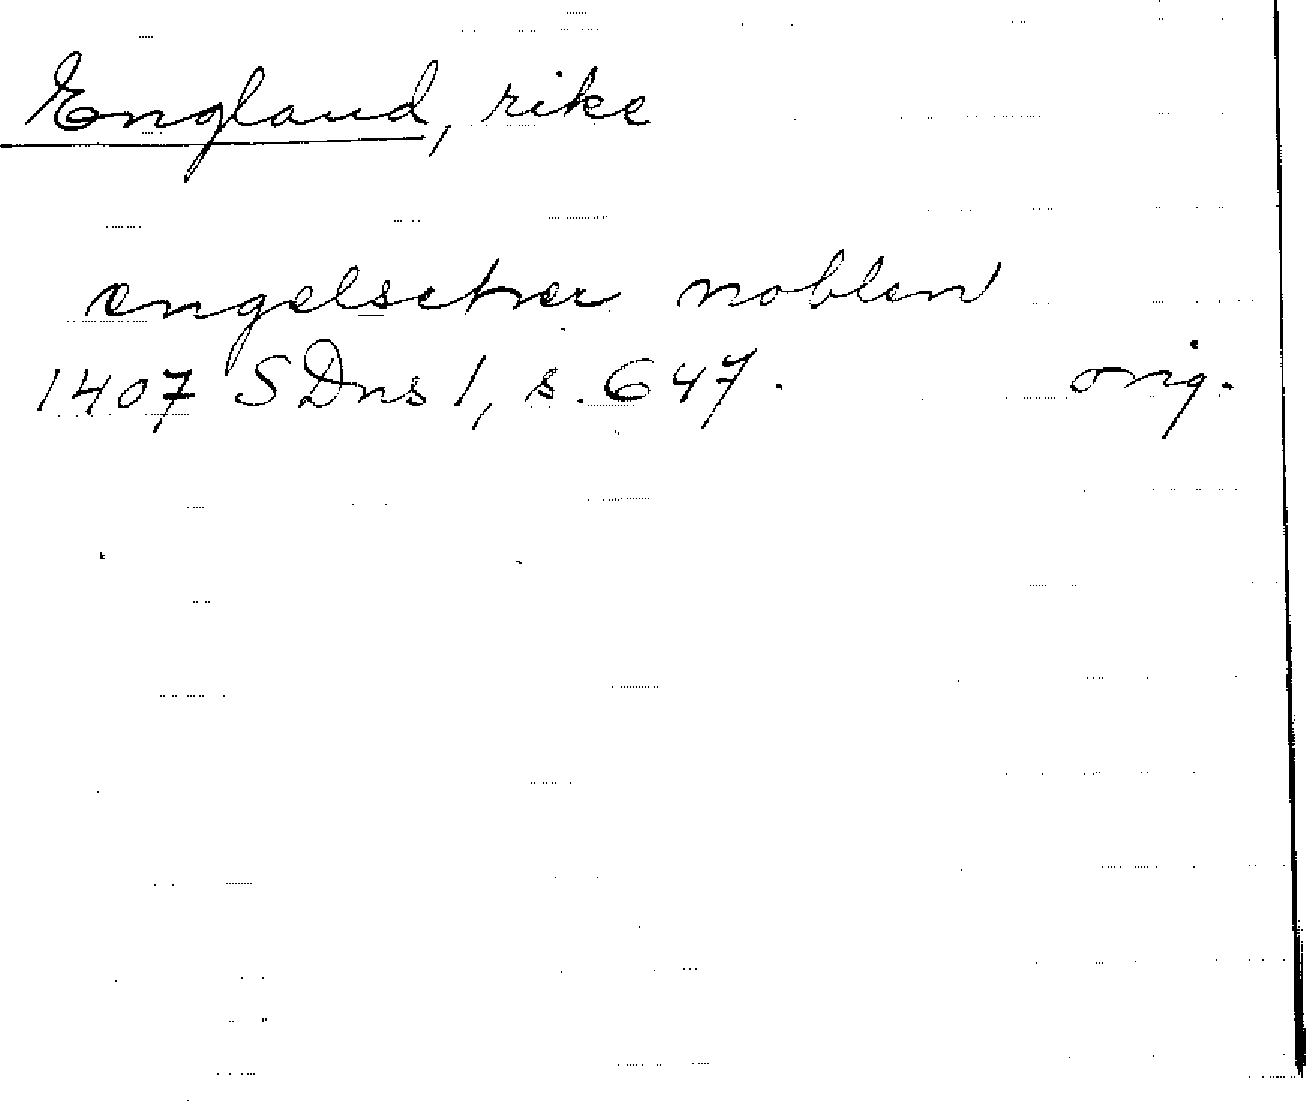 England, rike
engelscher noblen
1407 SDns 1, s. 647. orig.